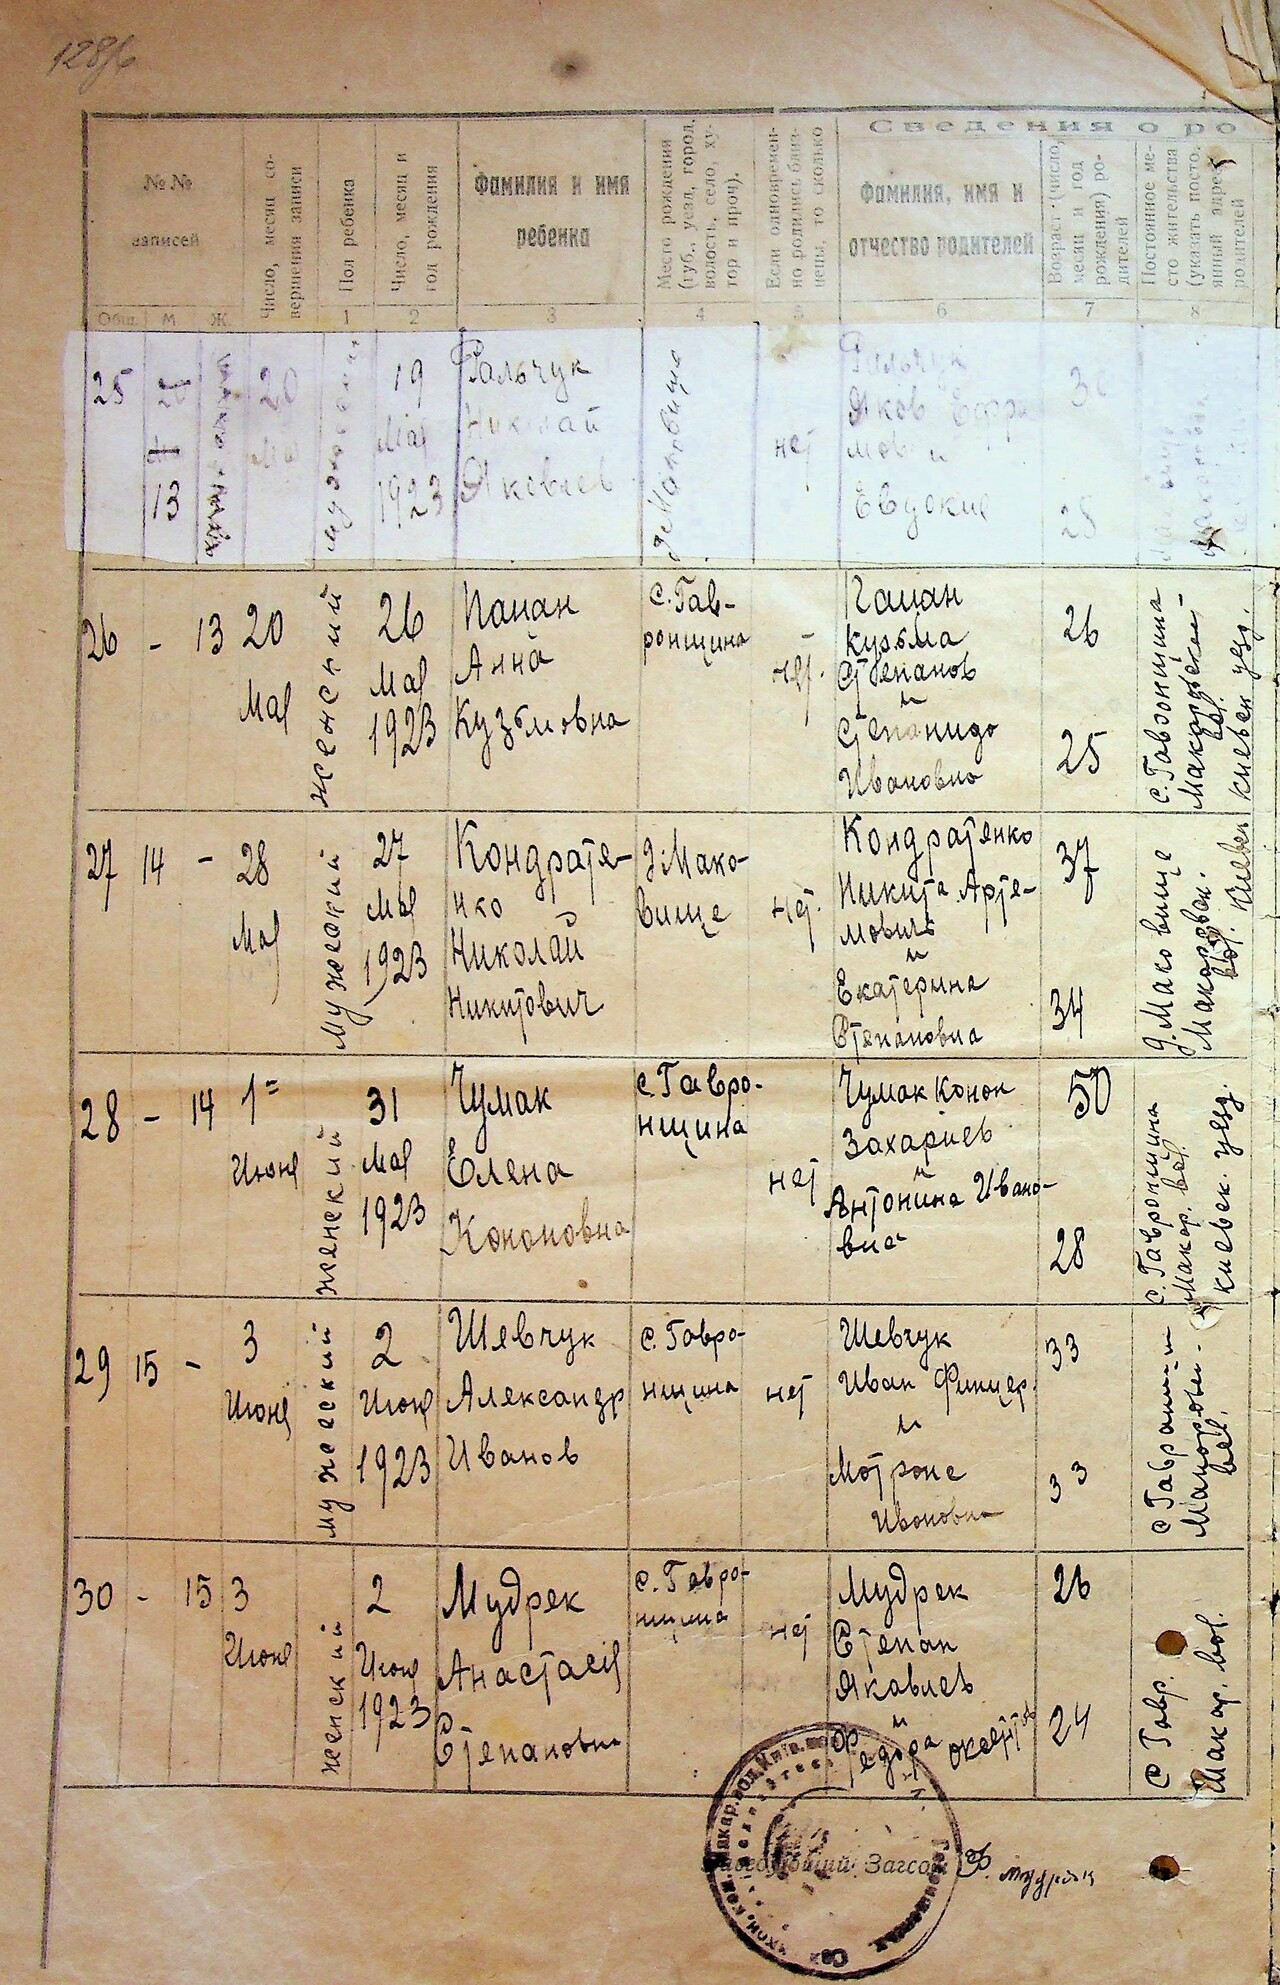 128/б
Сведения о ро
№ №
записей
Число, месяц со-
вершения записи
Пол ребенка
Число, месяц и
год рождения
Фамилия и имя
ребенка
Место рождения
(губ., уезд, город,
волость, село, ху-
тор и проч).
Если одновремен-
но родились близ-
нецы, то сколько
Фамилия, имя и
отчество родителей
Возраст (число,
месяц и год
рождения) ро-
дителей
Постоянное ме-
сто жительства
(указать посто-
янный адрес)
родителей
Общ. М Ж. 1 2 3 4 5 6 7 8
25
13
20
Мая
мужской
19
Мая
1923
Фальчук
Николай
Яковлев
д. Маковище
нет
Фальчук
Яков Ефри
мов и
Евдокия
30
25
26 - 13
20
Мая
женский
26
Мая
1923
Панан
Анна
Кузьмовна
с. Гав-
ронщина
нет.
Кузьма
Степанов
и
Степанида
Ивановна
26
25
с. Гавронщина
Макаровской
вол.
Киевск уезд.
27 14 -
28
Мая
мужский
27
Мая
1923
Кондрате-
нко
Николай
Никитович
д. Мако-
вище
нет.
Кондратенко
Никита Арте-
мович
и
Екатерина
Степановна
37
34
д. Маковище
Макаровск.
вол. Киевск
28 - 14
1=
Июня
женский
31
Мая
1923
Чумак
Елена
Кононовна
с. Гавро-
нщина
нет
Чумак Конон
Захариев
и
Антонина Ивано-
вна
50
28
с. Гавронщина
Макар. вол.
Киевск. уезд.
29 15 -
3
Июня
мужеский
2
Июня
1923
Шевчук
Александр
Иванов
с. Гавро-
нщина
нет
Шевчук
Иван
и
Мотрона
Ивановна
33
33
с Гавронщи
вол.
30 - 15
3
Июня
женский
2
Июня
1923
Мудрек
Анастасия
Степановна
с. Гавро-
нщина
нет
Мудрек
Степан
Яковлев
и
Федора
26
24
с Гавр.
Макар. вол.
Заведующий Загсом Ф. Мудрак